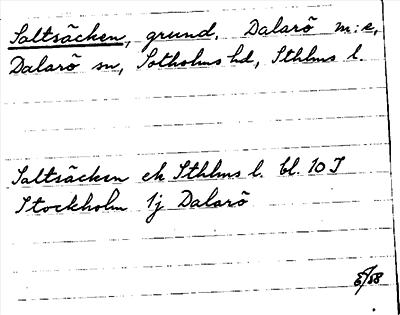 Saltsäcken, grund, Dalarö m:e,
Dalarö sn, Sotholms hd, Sthlms l.
Saltsäcken ek Sthlms l. bl. 10 I
Stockholm 1j Dalarö
/58